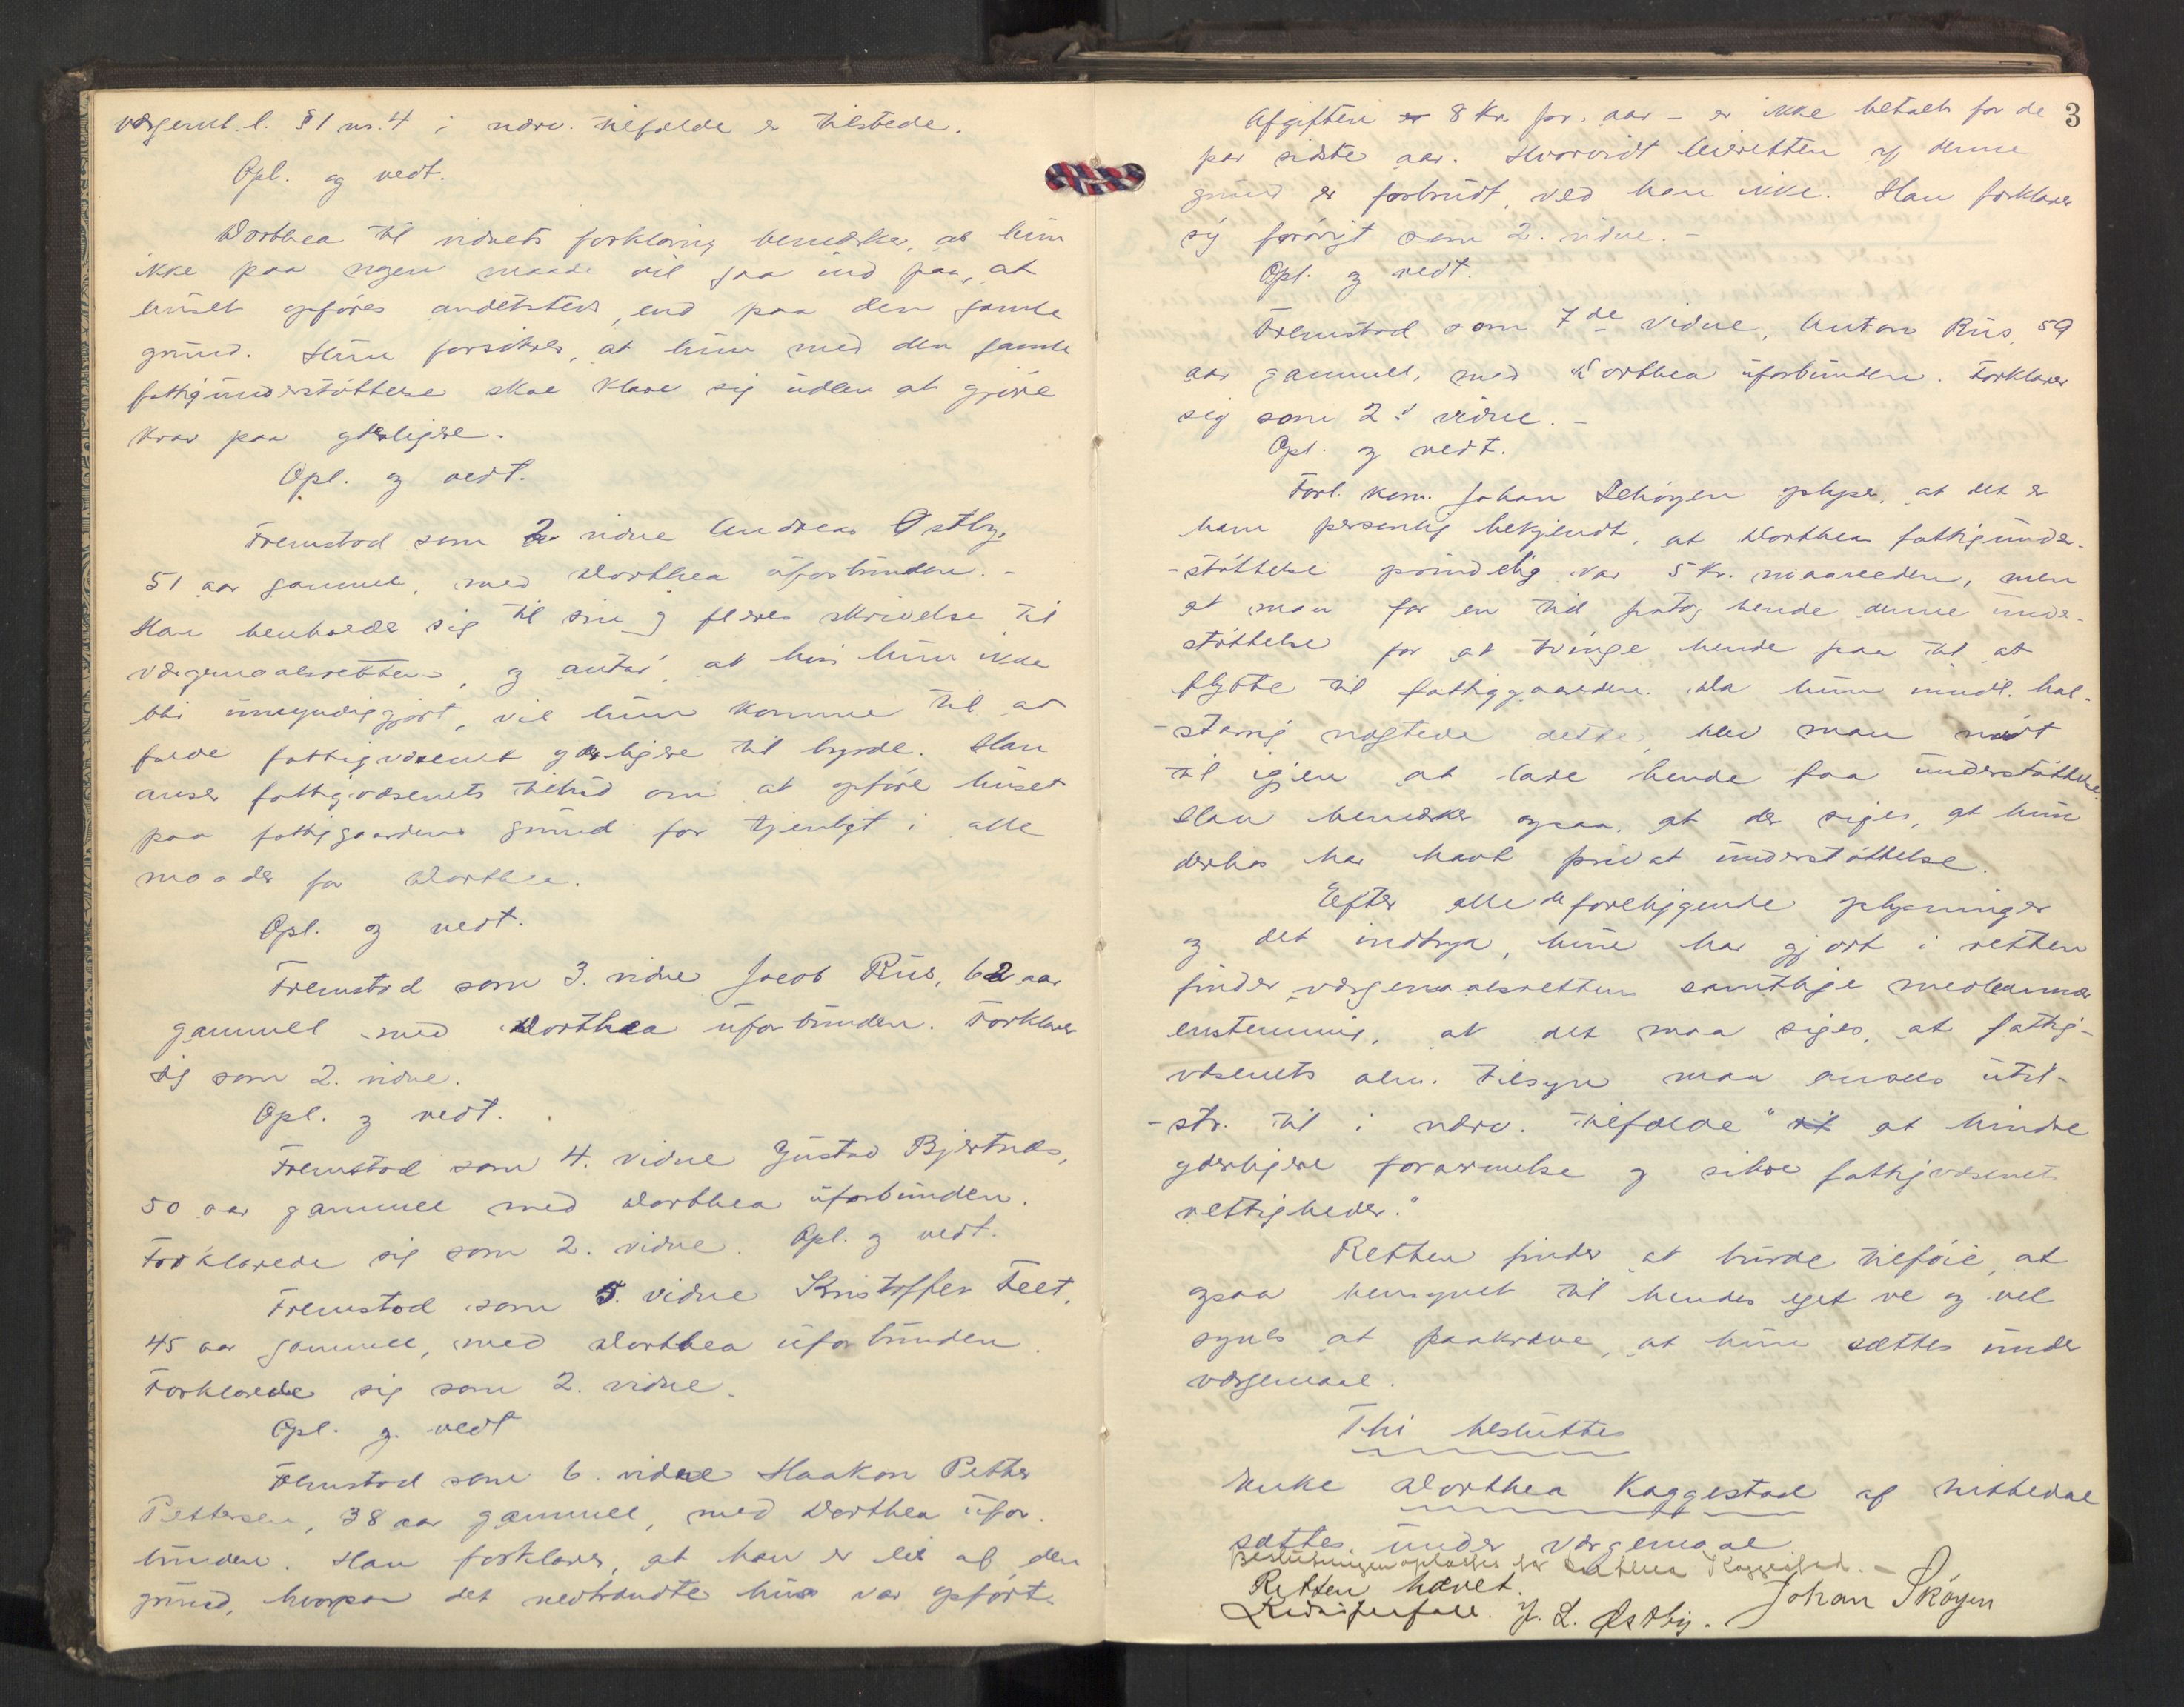 værgemt. l. § 1 nr. 4 i nærv. tilfælde er tilstede.
Opl. og vedt.
Dorthea til vidnets forklaring bemerker, at hun
ikke paa nogen maade vil gaa ind paa, at
huset opføres andetsteds, end paa den gamle
grund. Hun forsikrer, at hun med den gamle
fattigunderstøttelse skal klare sig uden at gjøre
krav paa yderligere.
Opl. og vedt.
Fremstod som 2. vidne Andreas Østby,
51 aar gammel, med Dorthea uforbunden. -
Han henholder sig til sin og fleres skrivelse til
værgemaalsretten, og antar at hvis hun ikke
bli umyndiggjort, vil hun komme til at
falde fattigvæsenet yderligere til byrde. Han
anser fattigvæsenets tilbud om at opføre huset
paa fattiggaardens grund for tjenligt i alle
maader for Dorthea.
Opl. og vedt.
Fremstod som 3. vidne Jacob Riis, 62 aar
gammel med Dorthea uforbunden. Forklarer
sig som 2. vidne.
Opl. og vedt.
Fremstod som 4. vidne Gustav Bjertnæs,
50 aar gammel med Dorthea uforbunden.
Forklarede sig som 2. vidne. Opl. og vedt.
Fremstod som 5. vidne Kristoffer Feet,
45 aar gammel, med Dorthea uforbunden.
Forklarede sig som 2. vidne.
Opl. og vedt
Fremstod som 6. vidne Haakon Petter
Pettersen, 38 aar gammel, med Dorthea ufor-
bunden. Han forklarer, at han er eier af den
grund, hvorpaa det nedbrændte hus var opført.
3
Afgiften er 8 kr. pr. aar - er ikke betalt for de
par sidste aar. Hvorvidt leieretten af denne
grund er forbrudt, ved han ikke. Han forklarer
sig forøvrigt som 2. vidne. -
Opl. og vedt.
Fremstod som 7de vidne, Anton Riis, 59
aar gammel, med Dorthea uforbunden. Forklarer
sig som 2. vidne. -
Opl. og vedt.
Forl. kom. Johan Schøyen oplyser, at det er
ham personlig bekjendt, at Dortheas fattigunder-
-støttelse var 5 kr. maaneden, men
at man for en tid fratog hende denne under-
støttelse for at tvinge hende paa til at
flytte til fattiggaarden. Da hun imidl. hal-
-starrig nægtede dette, blev man nødt
til igjen at lade hende faa understøttelse.
Han bemerker ogsaa, at der siges, at hun
derhos har havt privat understøttelse.
Efter alle de foreliggende oplysninger
og det indtryk, hun har gjort i retten
finder værgemaalsrettens samtlige medlemmer
enstemmig, at det maa siges, at fattig-
væsenets alm. tilsyn maa ansees util-
-str. til i nærv. tilfælde "at hindre
yderligere forarmelse og sikre fattigvæsenets
rettigheder."
Retten finder at burde tilføie, at
ogsaa hensynet til hendes eget ve og vel
synes at paakræve, at hun sættes under
værgemaal.
Thi besluttes
Enke Dorthea Kaggestad af Nittedal
sættes under værgemaal
Beslutningen oplæstes for Dorthea Kaggestad. -
Retten hævet.
J. L. Østby. Johan Skøyen